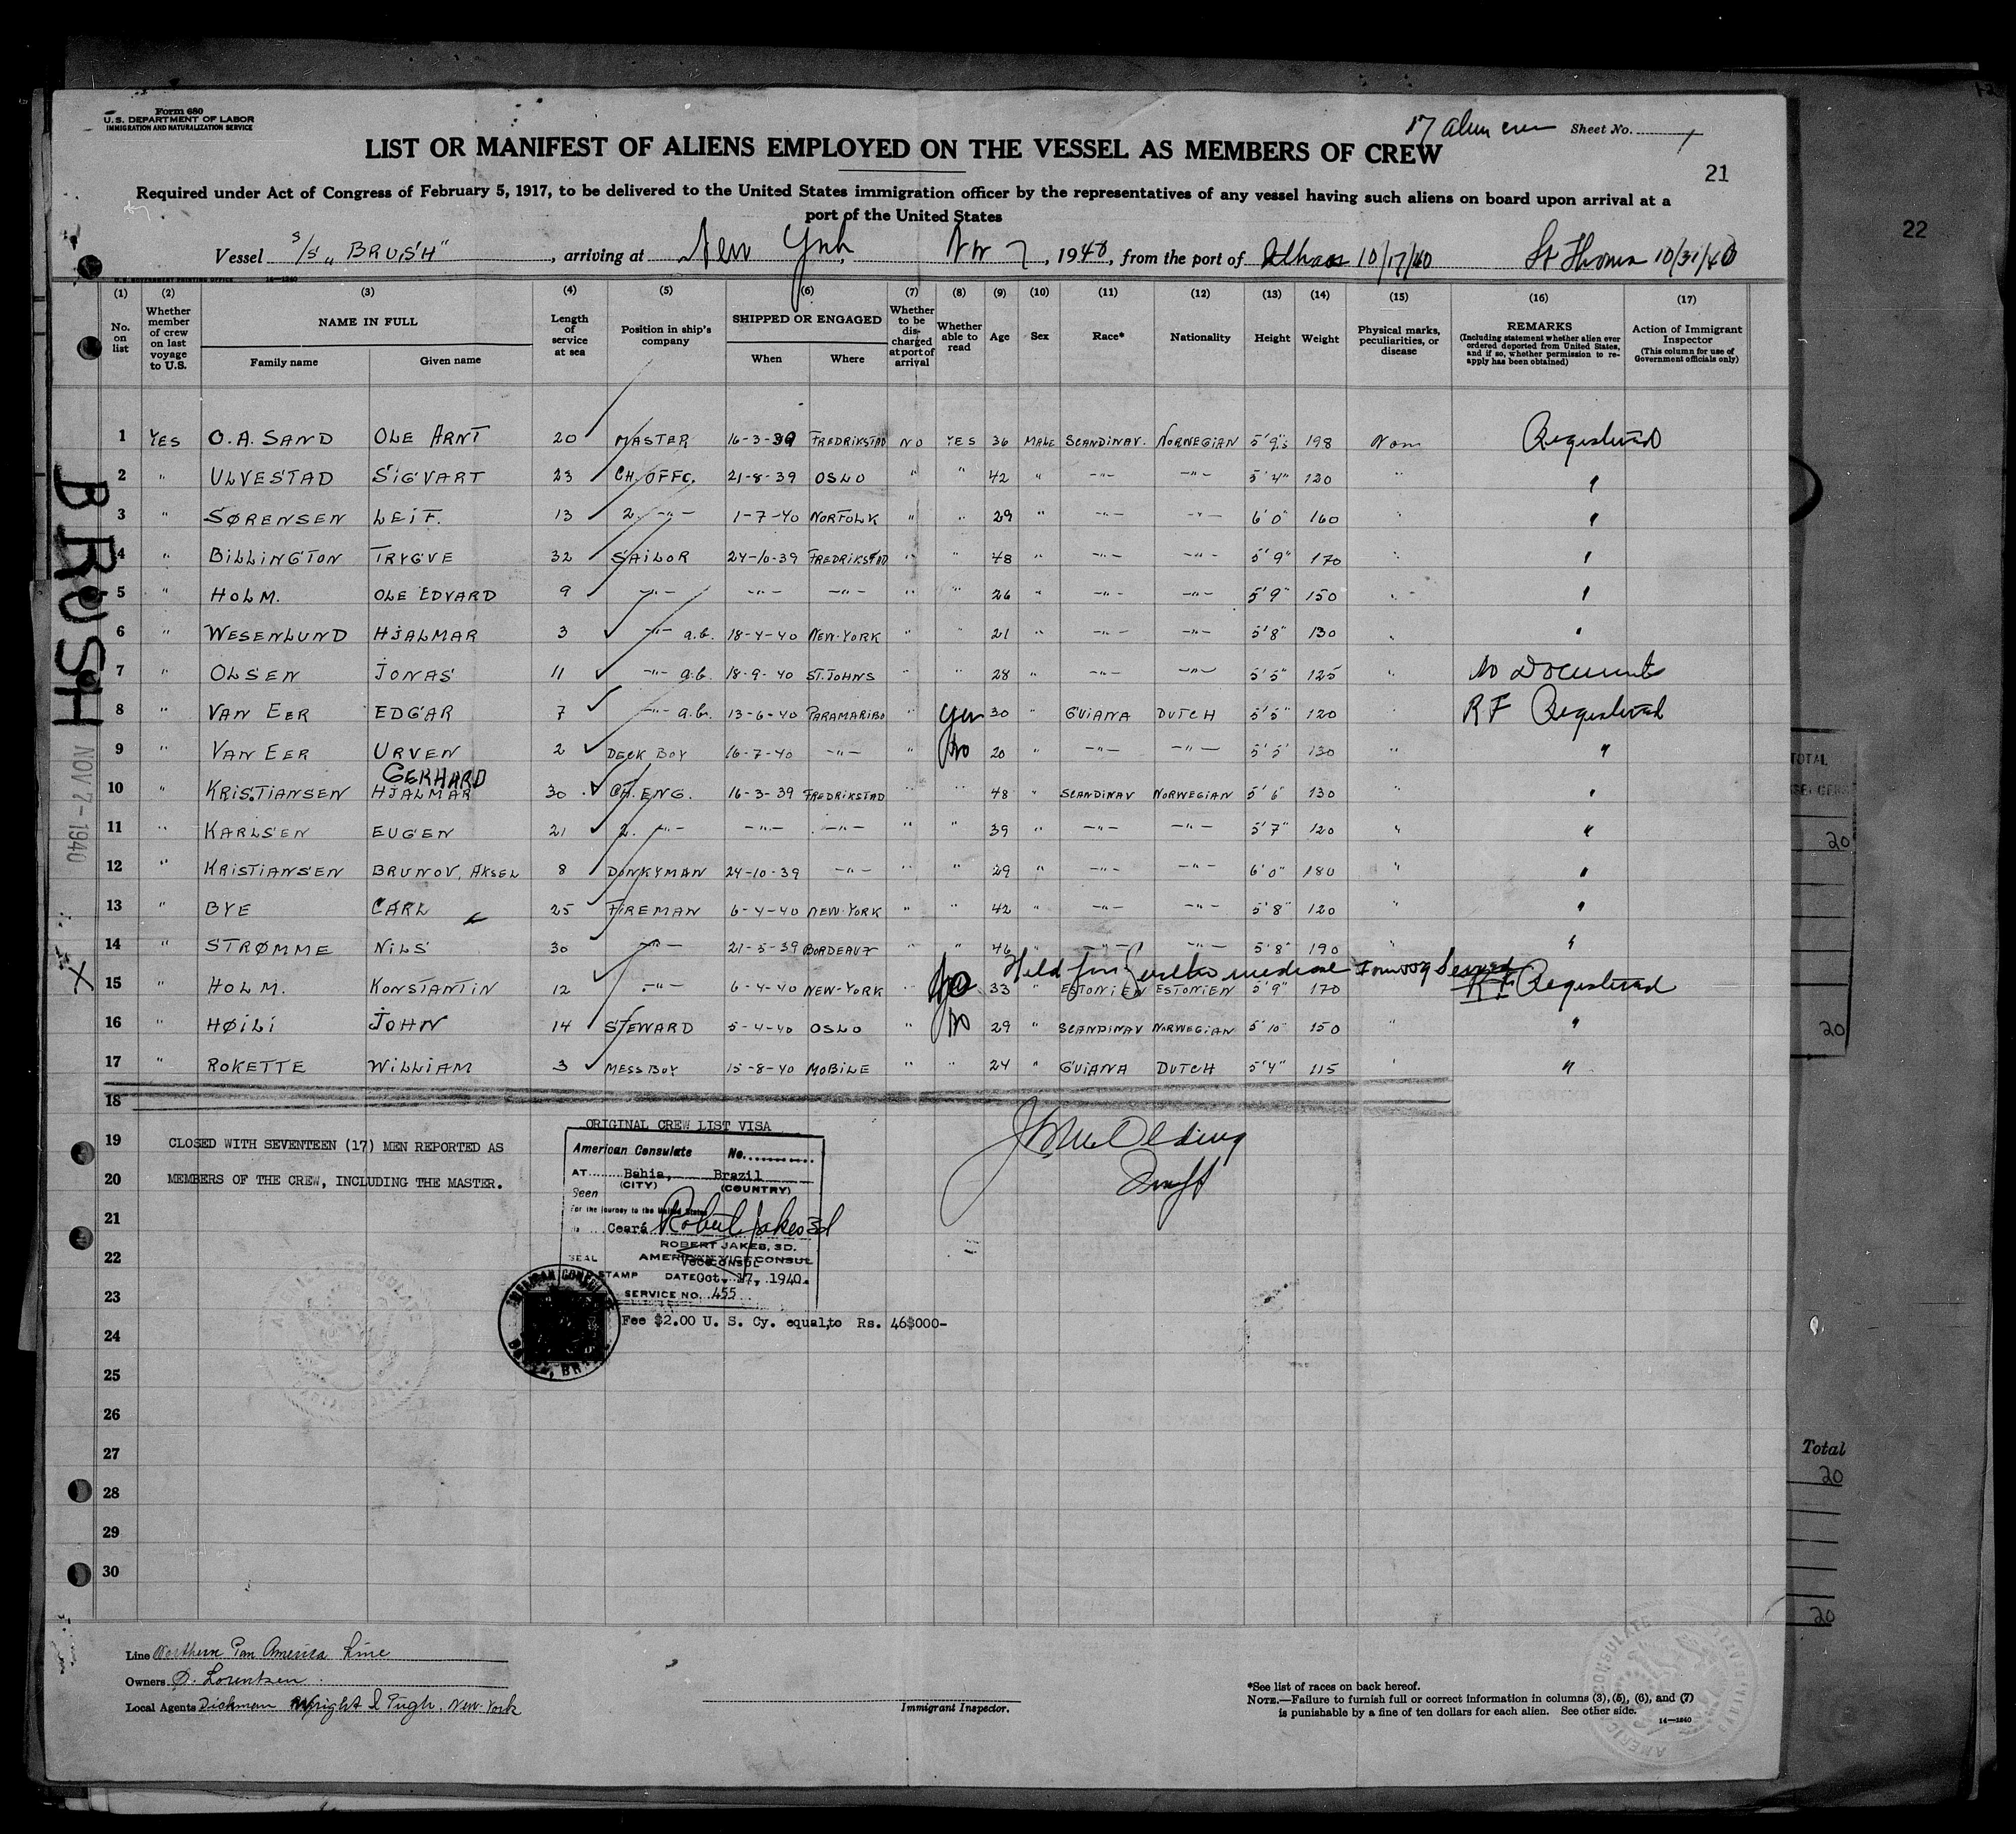 Form 680
U.S. DEPARTMENT OF LABOR
IMMIGRATION AND NATURALIZATION SERVICE
17 alien crew Sheet No. 1
LIST OR MANIFEST OF ALIENS EMPLOYED ON THE VESSEL AS MEMBERS OF CREW
21
Required under Act of Congress of February 5, 1917, to be delivered to the United States immigration officer by the representatives of any vessel having such aliens on board upon arrival at a
port of the United States
22
Vessel S/S „BRUSH", arriving at New York, Nov 7, 1940, from the port of 10/17/40 St Thomas 10/31/40
U.S. GOVERNMENT PRINTING OFFICE 14—1240
(1) (2) (3) (4) (5) (6) (7) (8) (9) (10) (11) (12) (13) (14) (15) (16) (17)
No. on list
Whether member of crew on last voyage to U.S.
NAME IN FULL
Family name Given name
Length of service at sea
Position in ship's company
SHIPPED OR ENGAGED
When Where
Whether to be discharged at port of arrival
Whether able to read
Age Sex Race* Nationality Height Weight
Physical marks, peculiarities, or disease
REMARKS
(Including statement whether alien ever ordered deported from United States, and if so, whether permission to reapply has been obtained)
Action of Immigrant Inspector
(This column for use of Government officials only)
1 YES O.A. SAND OLE ARNT 20 MASTER 16-3-39 FREDRIKSTAD NO YES 36 MALE SCANDINAV. NORWEGIAN 5'9" 198 Non Registered
2 " ULVESTAD SIGVART 23 CH. OFFC. 21-8-39 OSLO " " 42 " -"- -"- 5'4" 120 " "
3 " SØRENSEN LEIF. 13 2. -"- 1-7-40 NORFOLK " " 29 " -"- -"- 6'0" 160 " "
4 " BILLINGTON TRYGVE 32 SAILOR 24-10-39 FREDRIKSTAD " " 48 " -"- -"- 5'9" 170 " "
5 " HOLM. OLE EDVARD 9 -"- -"- -"- " " 26 " -"- -"- 5'9" 150 " "
6 " WESENLUND HJALMAR 3 -"- a.b. 18-4-40 NEW-YORK " " 21 " -"- -"- 5'8" 130 " "
7 " OLSEN JONAS 11 -"- a.b. 18-9-40 ST. JOHNS " " 28 " -"- -"- 5'5" 125 " No Documents
8 " VAN EER EDGAR 7 -"- a.b. 13-6-40 PARAMARIBO " Yes 30 " GUIANA DUTCH 5'5" 120 " RF Registered
9 " VAN EER URVEN 2 DECK BOY 16-7-40 -"- " No 20 " -"- -"- 5'5" 130 " "
GERHARD
10 " KRISTIANSEN HJALMAR 30 CH. ENG. 16-3-39 FREDRIKSTAD " " 48 " SCANDINAV NORWEGIAN 5'6" 130 " "
11 " KARLSEN EUGEN 21 2. -"- -"- -"- " " 39 " -"- -"- 5'7" 120 " "
12 " KRISTIANSEN BRUNOV, AKSEL 8 DONKYMAN 24-10-39 -"- " " 29 " -"- -"- 6'0" 180 " "
13 " BYE CARL 25 FIREMAN 6-4-40 NEW-YORK " " 42 " -"- -"- 5'8" 120 " "
14 " STRØMME NILS 30 -"- 21-5-39 BORDEAUX " " 46 " -"- -"- 5'8" 190 " "
Held for medical Form 009 Served
15 " HOLM. KONSTANTIN 12 -"- 6-4-40 NEW-YORK " No 33 " ESTONIEN ESTONIEN 5'9" 170 RF Registered
16 " HØILI JOHN 14 STEWARD 5-4-40 OSLO " No 29 " SCANDINAV NORWEGIAN 5'10" 150 " "
17 " ROKETTE WILLIAM 3 MESS BOY 15-8-40 MOBILE " " 24 " GUIANA DUTCH 5'4" 115 " "
18
19
20
21
22
23
24
25
26
27
28
29
30
BRUSH
NOV 7-1940
X
CLOSED WITH SEVENTEEN (17) MEN REPORTED AS
MEMBERS OF THE CREW, INCLUDING THE MASTER.
ORIGINAL CREW LIST VISA
American Consulate No.
AT Bahia, Brazil
(CITY) (COUNTRY)
Seen
For the journey to the United States
Ceará Robert Jakes 3d
ROBERT JAKES, 3D.
AMERICAN VICE CONSUL
VICE CONSUL
SEAL
STAMP DATE Oct. 17, 1940.
SERVICE NO. 455
Fee $2.00 U. S. Cy. equal to Rs. 46$000-
TOTAL
20
20
Total
20
20
Line Northern Pan America Line
Owners Ø. Lorentzen
Local Agents Dichmann Wright & Pugh, New-York
Immigrant Inspector.
*See list of races on back hereof.
NOTE.—Failure to furnish full or correct information in columns (3), (5), (6), and (7)
is punishable by a fine of ten dollars for each alien. See other side.
14—1240
AMERICAN CONSULATE